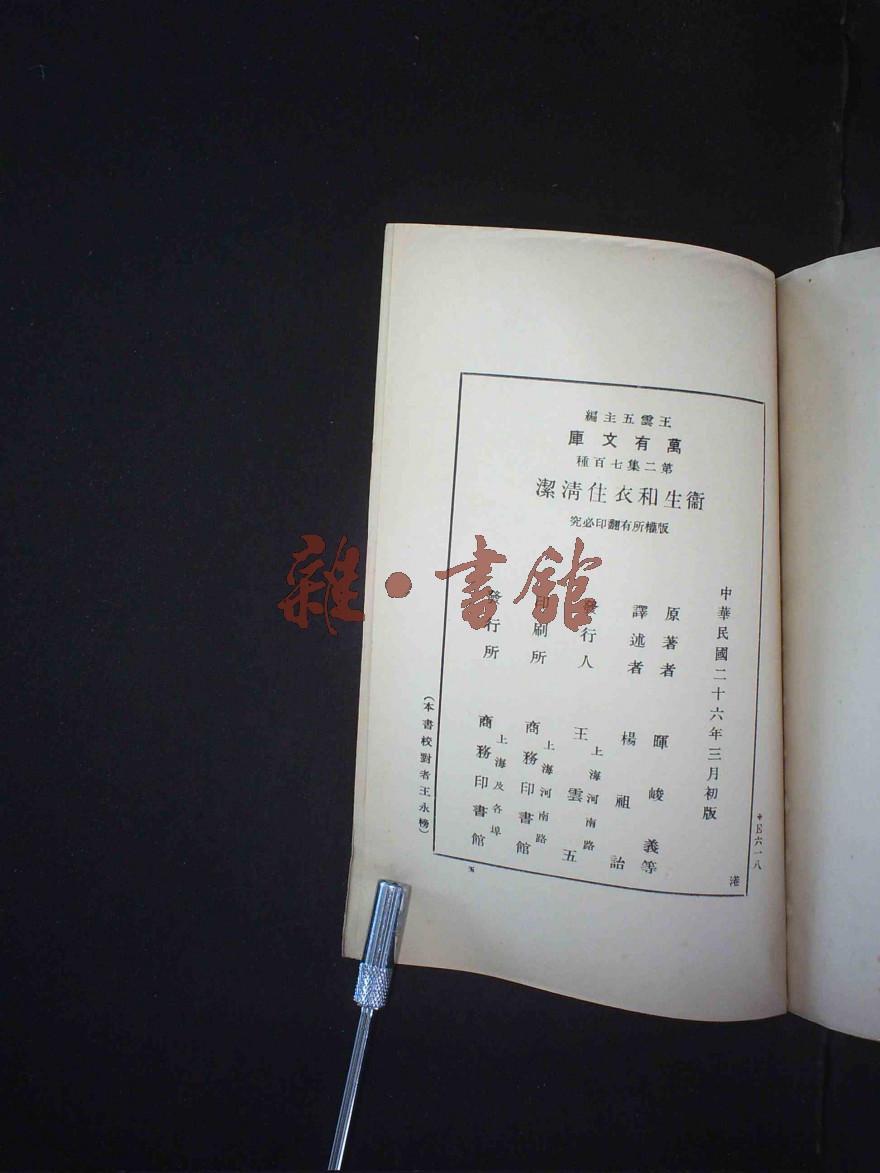 王雲五主編
萬有文庫
第二集七百種
衞生和衣住清潔
版權所有翻印必究
中華民國二十六年三月初版
原著者 暉峻義等
譯述者 楊祖詒
發行人 王雲五
上海河南路
印刷所 商務印書館
上海河南路
發行所 商務印書館
上海及各埠
(本書校對者王永榜)
*E六一八
港
雜·書館